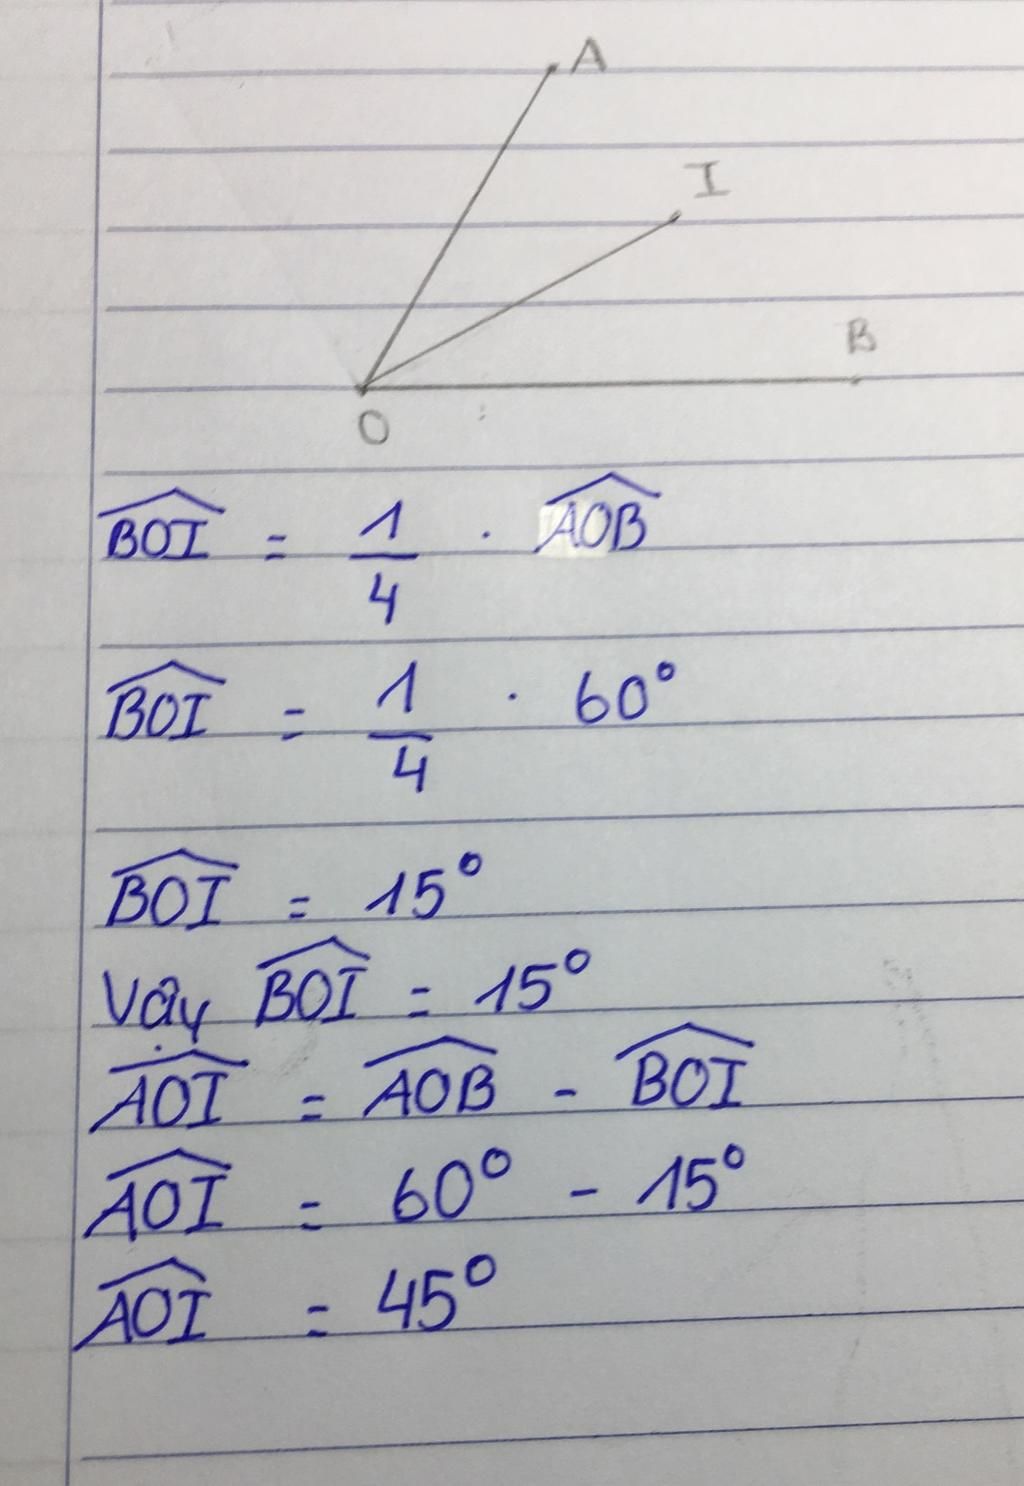 A
I
B
O
BOI = 1/4 . AOB
BOI = 1/4 . 60°
BOI = 15°
Vậy BOI = 15°
AOI = AOB - BOI
AOI = 60° - 15°
AOI = 45°